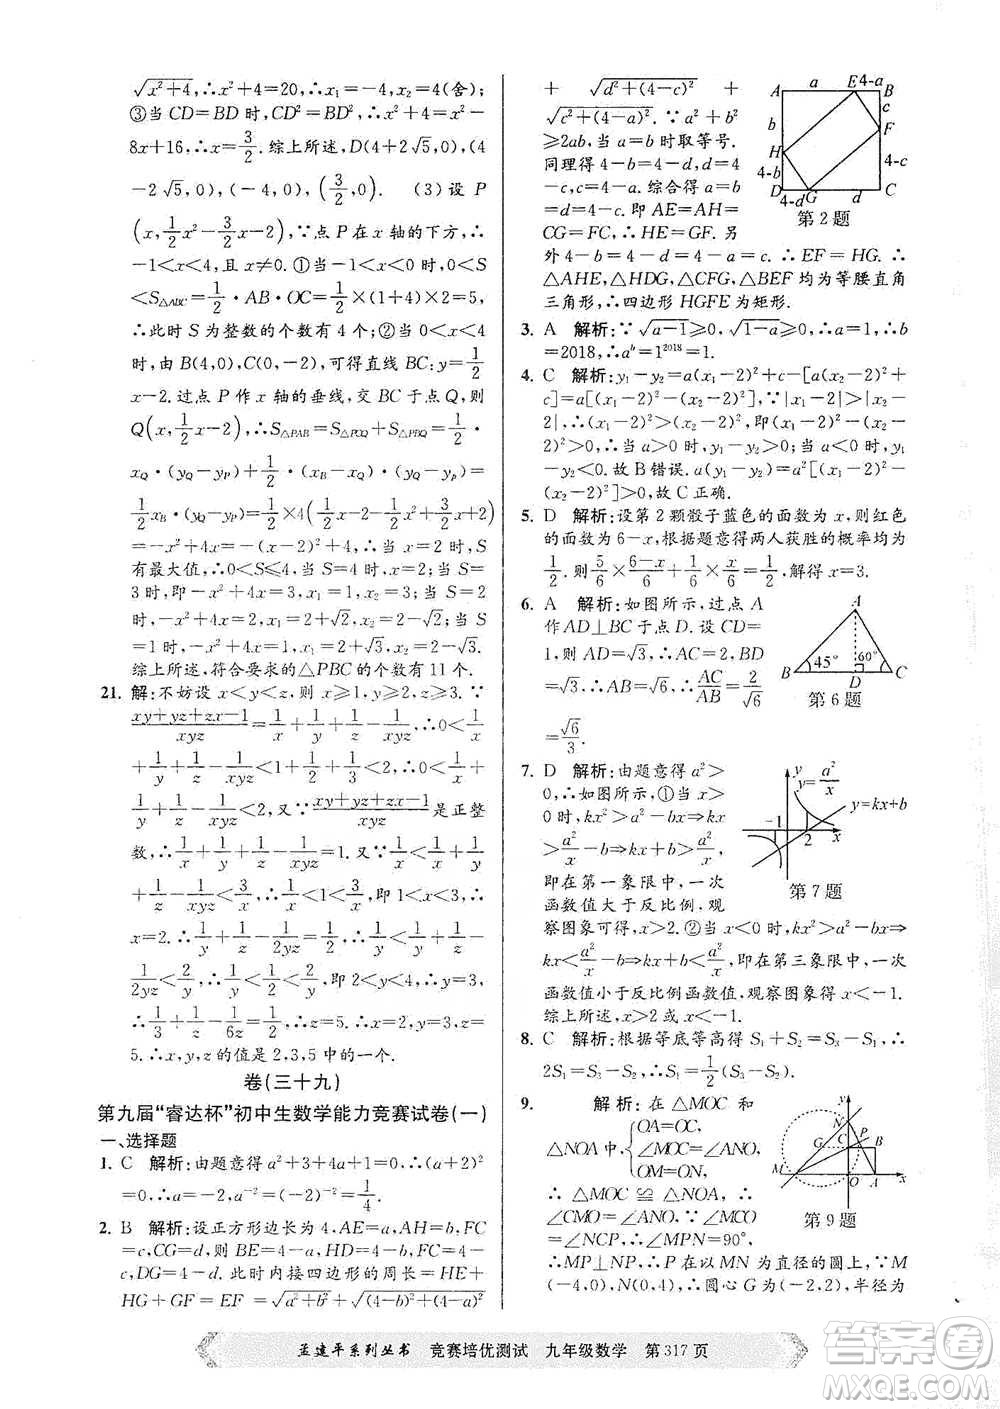 √(x²+4),∴x²+4=20,∴x₁=-4,x₂=4(舍);
③当 CD=BD 时,CD²=BD²,∴x²+4=x²-
8x+16,∴x=3/2.综上所述,D(4+2√5,0),(4
-2√5,0),(-4,0),(3/2,0). (3)设 P
(x,1/2x²-3/2x-2),∵点 P 在 x 轴的下方,∴
-1<x<4,且 x≠0.①当-1<x<0 时,0<S
<S△ABC=1/2·AB·OC=1/2×(4+1)×2=5,
∴此时 S 为整数的个数有 4 个;②当 0<x<4
时,由 B(4,0),C(0,-2),可得直线 BC:y=1/2
x-2.过点 P 作 x 轴的垂线,交 BC 于点 Q,则
Q(x,1/2x-2),∴S△PBC=S△PCQ+S△PBQ=1/2
x_Q·(y_Q-y_P)+1/2(x_B-x_Q)·(y_Q-y_P)=
1/2x_B·(y_Q-y_P)=1/2×4(1/2x-2-1/2x²+3/2x+2)
=-x²+4x=-(x-2)²+4,∴当 x=2 时,S
有最大值,∴0<S≤4.∴S=1,2,3,4.当 S=
3 时,即-x²+4x=3,x₁=1,x₂=3;当 S=2
时,-x²+4x=2,∴x₁=2+√2,x₂=2-√2;当 S
=1 时,-x²+4x=1,x₁=2+√3,x₂=2-√3.
综上所述,符合要求的△PBC 共有 11 个.
21. 解:不妨设 x<y<z,则 x≥1,y≥2,z≥3.∵
(xy+yz+zx-1)/xyz=1/x+1/y+1/z-1/xyz,∴0<1/x
+1/y+1/z-1/xyz<2,又∵(xy+yz+zx-1)/xyz是正整
数,∴1/x+1/y+1/z-1/xyz=1.∴1/x<1/x+1/y+
1/z-1/xyz<1/x+1/x+1/x=3/x,即 1<x<3,∴x=
2.∴1/y+1/z-1/2yz=1/2,∴1/y<1/2=1/y+1/z-
1/2yz<1/y+1/z<1/y+1/y=2/y,即 2<y<4,∴y=3.
∴1/3+1/z-1/6z=1/2,即1/z-1/6z=1/6,∴z=5.
5.∴x,y,z 的值是 2,3,5 中的一个.
卷(三十九)
第九届“睿达杯”初中生数学能力竞赛试卷(一)
一、选择题
1. C 解析:由题意得 a²+3+4a+1=0,∴(a+2)²
=0,∴a=-2.∴a⁻²=(-2)⁻²=1/4.
2. B 解析:设正方形边长为 4,AE=a,AH=b,FC
=c,CG=d,则 BE=4-a,HD=4-b,BF=4-
c,DG=4-d.此时内接四边形的周长=HE+
HG+GF+EF=√(a²+b²)+√((4-b)²+(4-d)²)
+ √(c²+d²) + √((4-c)²
+(4-a)²).∵a²+b²
≥2ab,当 a=b 时取等号.
同理得 4-b=4-d,c=d,4
-c,=4-a.综合得 a=b
=c=d.即 AE=AH=
CG=FC,∴HE=GF.另
外 4-b=4-d=4-a=c.∴EF=HG.∴
△AHE,△HDG,△CFG,△BEF 均为等腰直角
三角形,∴四边形 HGFE 为矩形.
A a E 4-a B
b c
H F
4-b 4-c
D 4-d G d C
第2题
3. A 解析:∵√(a-1)≥0,√(1-a)≥0,∴a=1,∴b
=2018,∴aᵇ=1²⁰¹⁸=1.
4. C 解析:y₁-y₂=a(x₁-2)²+c-[a(x₂-2)²+
c]=a[(x₁-2)²-(x₂-2)²],∵|x₁-2|>|x₂-
2|,∴(x₁-2)²>(x₂-2)²,∴(x₁-2)²-(x₂-
2)²>0,∴当 a>0 时,y₁-y₂>0;当 a<0 时,y₁-
y₂<0.故 B 错误.a(y₁-y₂)=a²[(x₁-2)²-(x₂
-2)²]>0,故 C 正确.
5. D 解析:设第 2 颗骰子蓝色的面数为 x,则红色
的面数为 6-x,根据题意得两人获胜的概率均为
1/2.则5/6×(6-x)/6+1/6×x/6=1/2,解得 x=3.
6. A 解析:如图所示,过点 A
作 AD⊥BC 于点 D.设 CD=
1,则 AD=√3,AC=2,BD
=√3,∴AB=√6,∴AC/AB=2/√6
=√6/3.
A
45° 60°
B D C
第6题
7. D 解析:由题意得 a²>
0,∴如图所示,①当 x>
0 时,kx²+bx>a²⇒kx
>a²/x-b⇒kx+b>a²/x,
即在第一象限中,一次
函数值大于反比例.观
察图象可得 x>2.②当 x<0 时,kx²+bx>a²⇒
kx<a²/x-b⇒kx+b<a²/x,即在第三象限中,一次
函数值小于反比例函数值,观察图象得 x<-1.
综上所述,x>2 或 x<-1.
y y=a²/x
y=kx+b
-1 2 x
第7题
8. C 解析:根据等底等高得 S₁+S₂=S₃+S₂∴
2S₁=S₂=S₃,∴S₁=1/2S₂=1/2S₃.
9. 解析:在△MOC 和
△NOA 中,{OA=OC, ∠MOC=∠NOA, OM=ON,
∴△MOC≌△NOA,∴
∠CMO=∠ANO,∵∠MCO
=∠NCP,∴∠MPN=90°,
∴MP⊥NP,∴P 在以 MN 为直径的圆上.∵M
(-4,0),N(0,4),∴圆心 G 为(-2,2),半径为
y
N
G C P B
M O A x
第9题
孟建平系列丛书 竞赛培优测试 九年级数学 第317页
答案圈
MXQE.COM